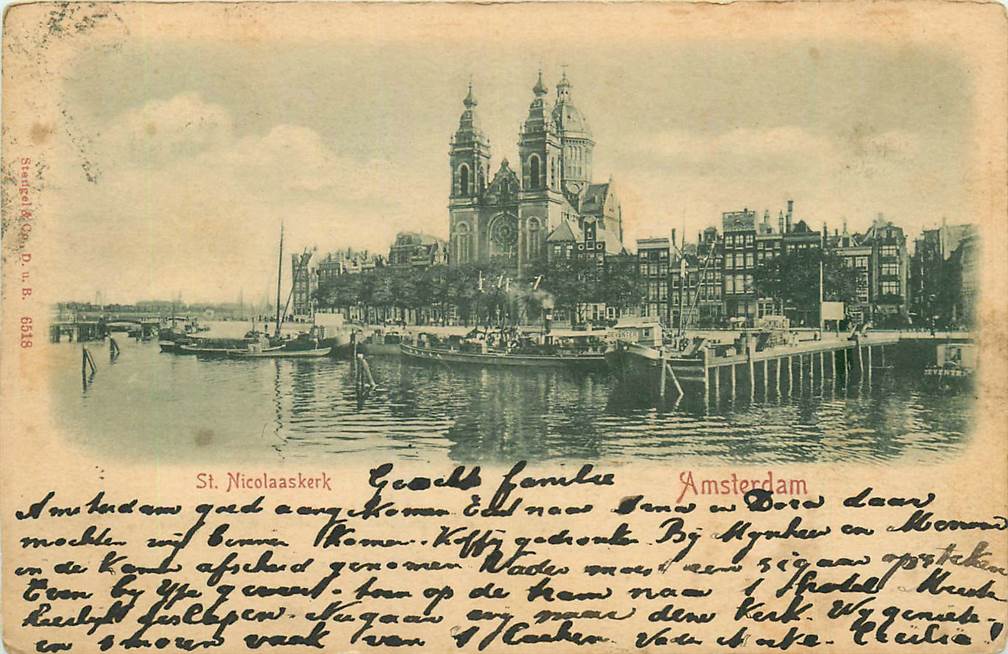 Stengel & Co., D. u. B. 6518
147
St. Nicolaaskerk
Amsterdam
Geachte familie
Amsterdam goed aangekomen Eerst naar en Dora daar
mochten wij binnen komen. Koffij gedronken Bij Mynheer en Mevrouw
in de Kamer afscheid genomen Vader moest een sigaar opsteken
Even by geweest. toen op de tram naar t Hotel
Heerlijk geslapen. Nu gaan wij naar de Kerk. Wy genieten
en smoren vaak van 't Vader Cecilia!